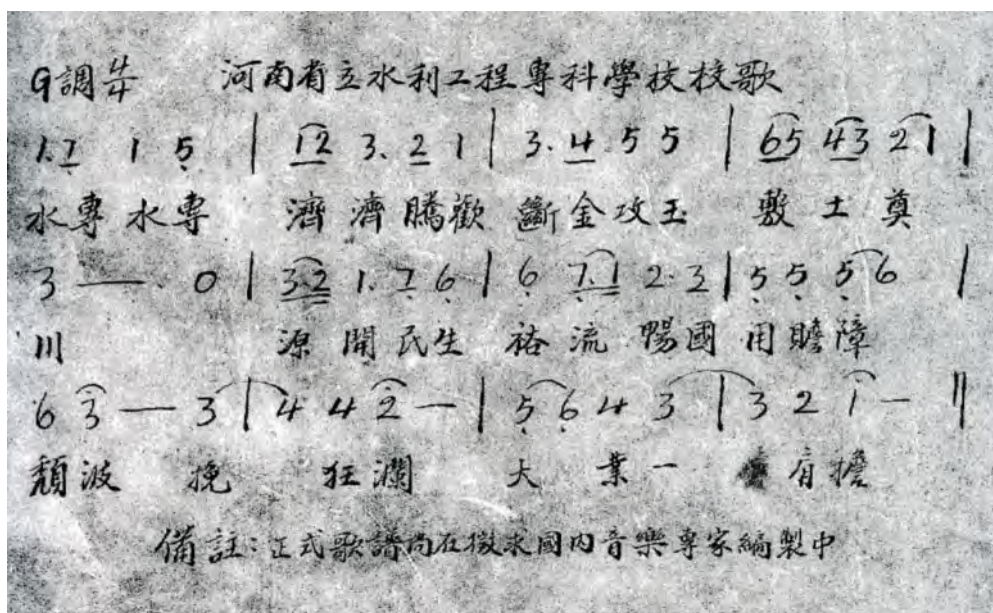 G調 4/4 河南省立水利工程專科學技校歌
1.7 1 5 | 12 3.2 1 | 3.4 5 5 | 65 43 21 |
水專水專 濟濟騰歡 斷金攻玉 敷土奠
3 — 0 | 3.2 1.7 6 | 6 7.1 2.3 | 5 5 5 6 |
川 源開民生 裕流暢國 用贍障
6 3 — 3 | 4 4 2 — | 5 6 4 3 | 3 2 1 — ||
頹波 挽 狂瀾 大業一 肩擔
備註:正式歌譜尚在徵求國內音樂專家編製中